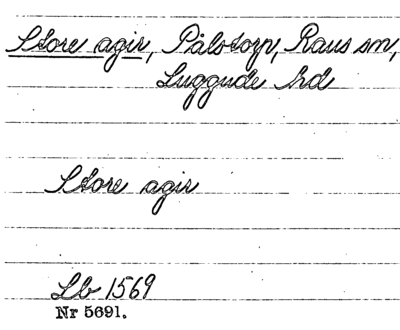 Store agir, Pålstorp, Raus sn,
Luggude hd
Store agir
Lb 1569
Nr 5691.